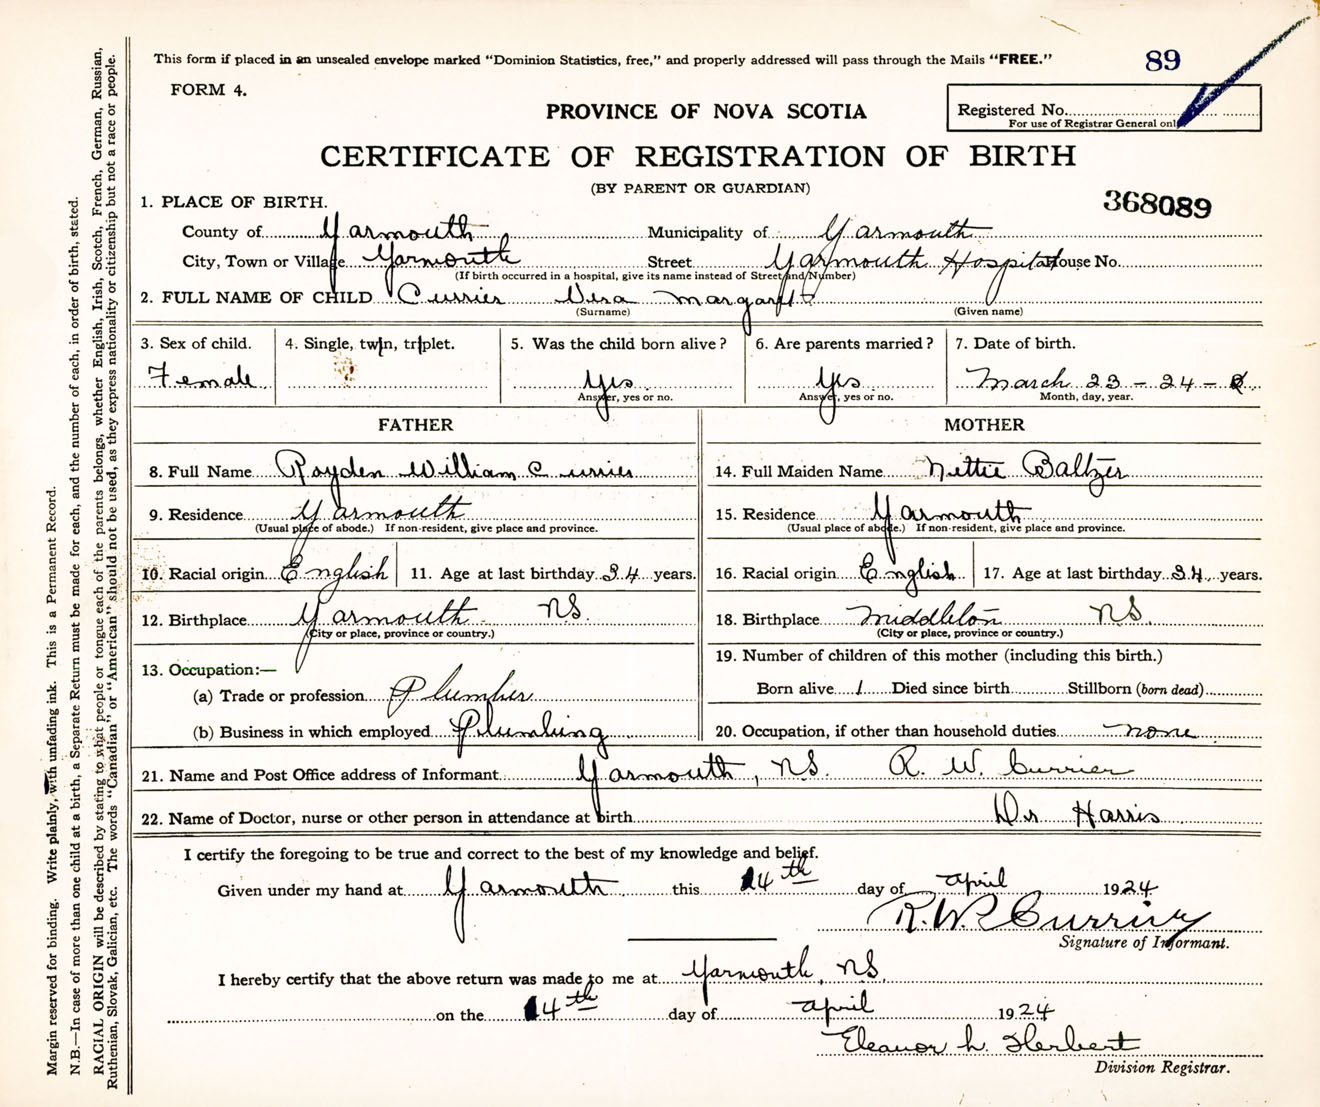 This form if placed in an unsealed envelope marked "Dominion Statistics, free," and properly addressed will pass through the Mails "FREE."
89
FORM 4.
PROVINCE OF NOVA SCOTIA
Registered No.
For use of Registrar General only
CERTIFICATE OF REGISTRATION OF BIRTH
(BY PARENT OR GUARDIAN)
368089
1. PLACE OF BIRTH.
County of Yarmouth Municipality of Yarmouth
City, Town or Village Yarmouth Street Yarmouth Hospital House No.
(If birth occurred in a hospital, give its name instead of Street and Number)
2. FULL NAME OF CHILD Currier Vera Margaret
(Surname) (Given name)
3. Sex of child. 4. Single, twin, triplet. 5. Was the child born alive? 6. Are parents married? 7. Date of birth.
Female Yes Yes March 23-24-
Answer, yes or no. Answer, yes or no. Month, day, year.
FATHER MOTHER
8. Full Name Royden William Currier 14. Full Maiden Name Nettie Baltzer
9. Residence Yarmouth 15. Residence Yarmouth
(Usual place of abode.) If non-resident, give place and province. (Usual place of abode.) If non-resident, give place and province.
10. Racial origin English 11. Age at last birthday 34 years. 16. Racial origin English 17. Age at last birthday 34 years.
12. Birthplace Yarmouth NS 18. Birthplace Middleton NS
(City or place, province or country.) (City or place, province or country.)
13. Occupation:— 19. Number of children of this mother (including this birth.)
(a) Trade or profession Plumber Born alive 1 Died since birth Stillborn (born dead)
(b) Business in which employed Plumbing 20. Occupation, if other than household duties none
21. Name and Post Office address of Informant Yarmouth, N.S. R. W. Currier
22. Name of Doctor, nurse or other person in attendance at birth Dr Harris
I certify the foregoing to be true and correct to the best of my knowledge and belief.
Given under my hand at Yarmouth this 14th day of April 1924
R. W. Currier
Signature of Informant.
I hereby certify that the above return was made to me at Yarmouth, NS.
on the 14th day of April 1924
Eleanor L. Herbert
Division Registrar.
Margin reserved for binding. Write plainly, with unfading ink. This is a Permanent Record.
N.B.—In case of more than one child at a birth, a Separate Return must be made for each, and the number of each, in order of birth, stated.
RACIAL ORIGIN will be described by stating to what people or tongue each of the parents belongs, whether English, Irish, Scotch, French, German, Russian,
Ruthenian, Slovak, Galician, etc. The words "Canadian" or "American" should not be used, as they express nationality or citizenship but not a race or people.